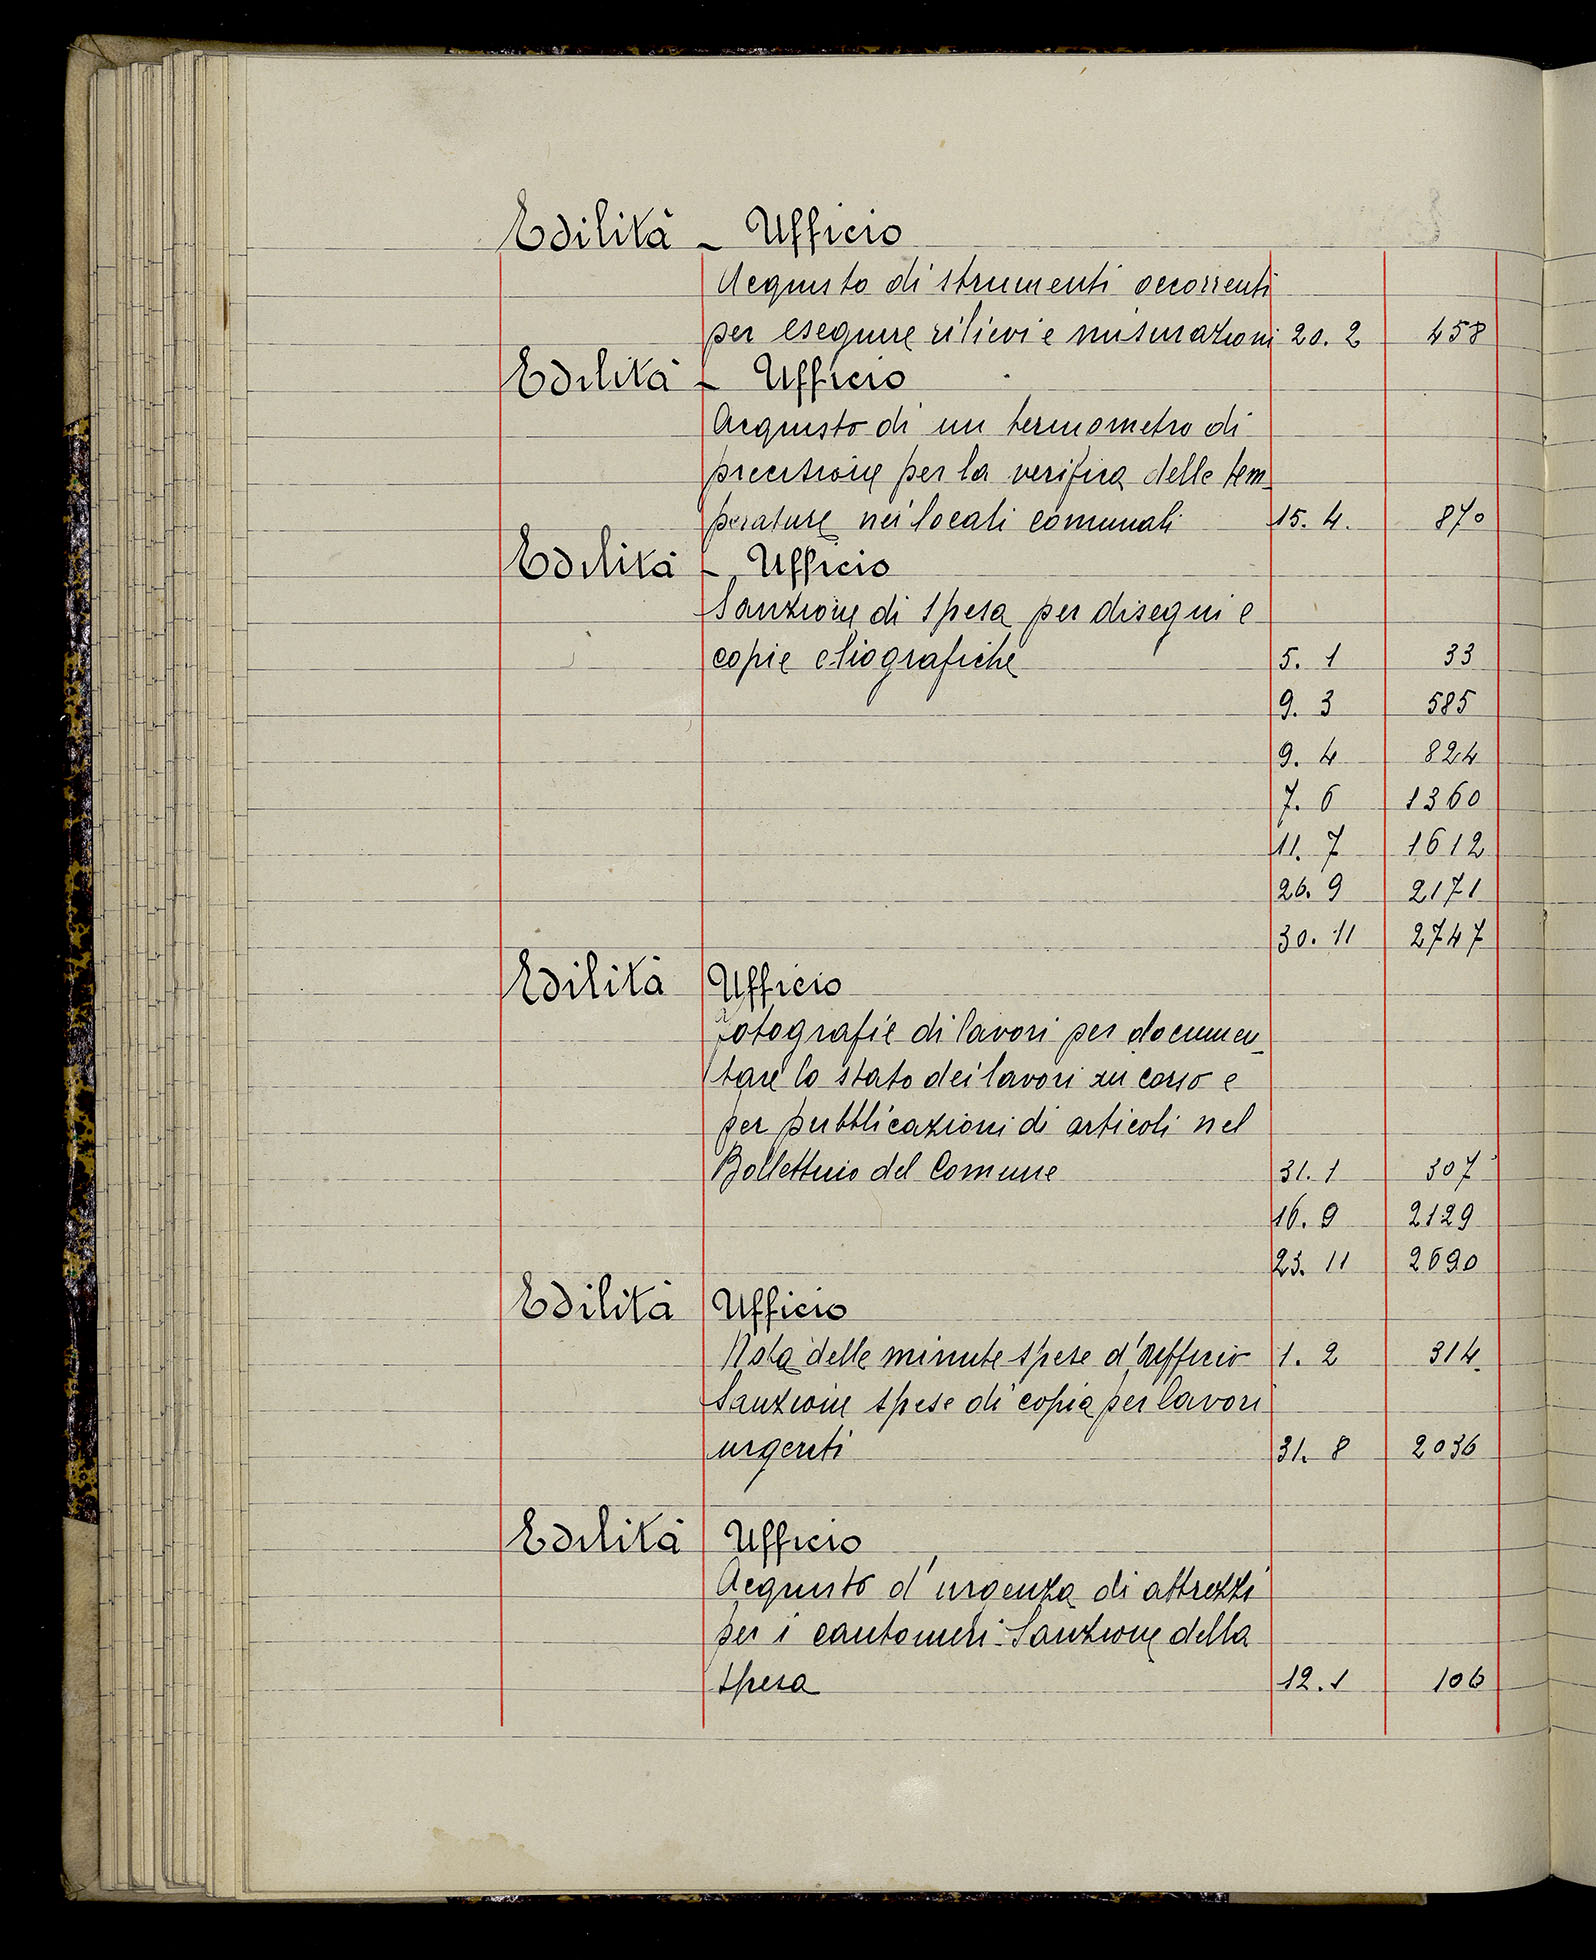 Edilità - Ufficio
Acquisto di strumenti occorrenti
per eseguire rilievi e misurazioni 20. 2 458
Edilità - Ufficio
Acquisto di un termometro di
precisione per la verifica delle tem-
perature nei locali comunali 15. 4. 870
Edilità - Ufficio
Sanzione di spesa per disegni e
copie eliografiche 5. 1 33
9. 3 585
9. 4 824
7. 6 1360
11. 7 1612
26. 9 2171
30. 11 2747
Edilità Ufficio
Fotografie di lavori per documen-
tare lo stato dei lavori in corso e
per pubblicazioni di articoli nel
Bollettino del Comune 31. 1 307
16. 9 2129
23. 11 2690
Edilità Ufficio
Nota delle minute spese d'ufficio 1. 2 314
Sanzione spese di copia per lavori
urgenti 31. 8 2036
Edilità Ufficio
Acquisto d'urgenza di attrezzi
per i cantonieri - Sanzione della
spesa 12. 1 106